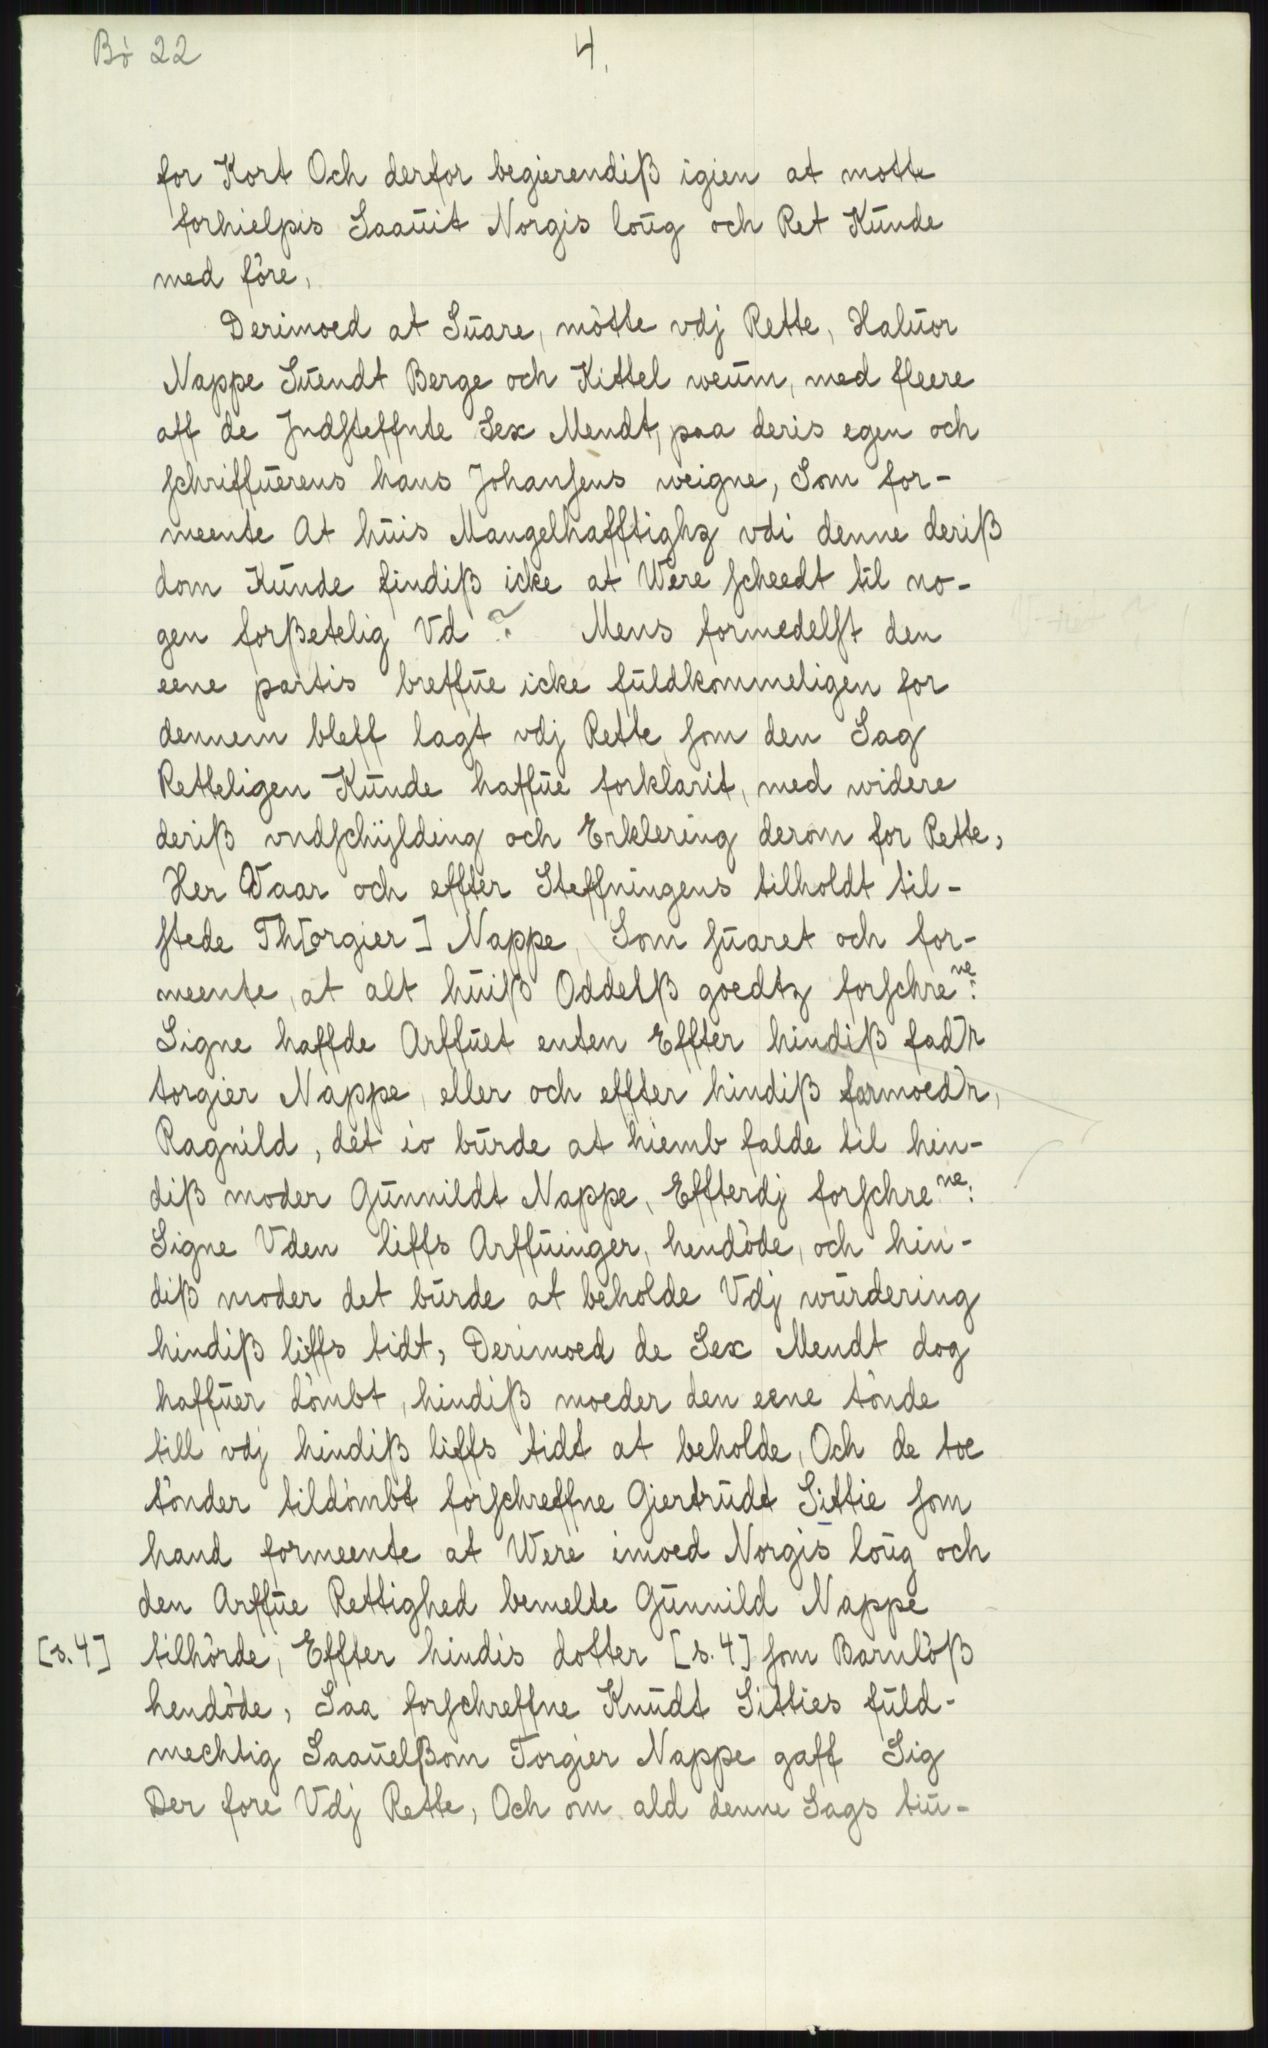 Bö 22
4.
for Kort Och derfor begierendiß igien at motte
forhielpis Saauit Norgis loug och Ret Kunde
med före,
Derimoed at Suare, mötte vdj Rette, Haluor
Nappe Suendt Berge och Kittel weum, med fleere
aff de Jndsteffnte Sex Mendt, paa deris egen och
schriffuerens hans Johansens weigne, Som for-
meente At huis Mangelhafftighz vdi denne deriß
dom Kunde findiß icke at Were scheedt til no-
gen forßetelig Vd ? Mens formedelst den
eene partis breffue icke fuldkommeligen for
dennem bleff lagt vdj Rette som den Sag
Retteligen Kunde haffue forklarit, med widere
deriß vndschÿlding och Erklering derom for Rette,
Her Vaar och effter Steffningens tilholdt til-
stede Th[orgier] Nappe, Som suaret och for-
meente, at alt huiß Oddelß goedtz forschre ne:
Signe haffde Arffuet enten Effter hindiß fad)r
torgier Nappe, eller och effter hindiß farmoed)r,
Ragnild, det io burde at hiemb falde til hen-
diß moder Gunnildt Nappe, Effterdj forschre ne:
Signe Vden liffs Arffuinger, hendöde, och hin-
diß moder det burde at beholde Vdj wurdering
hindiß liffs tidt, Derimoed de Sex Mendt dog
haffuer dömbt, hindiß moeder den eene tönde
till vdj hindiß liffs tidt at beholde, Och de toe
tönder tildömbt forschreffne Giertrudt Sittie som
hand formeente at Were imoed Norgis loug och
den Arffue Rettighed bemelte Gunnild Nappe
[s. 4] tilhörde, Effter hindis dotter [s. 4] som Barnlöß
hendöde, Saa forschreffne Knudt Sitties fuld-
mechtig Saauelßom Torgier Nappe gaff Sig
Der fore Vdj Rette, Och om ald denne Sags tiu-